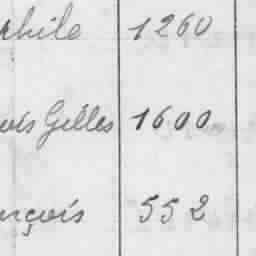 phile 1260
çois Gilles 1600
ançois 552